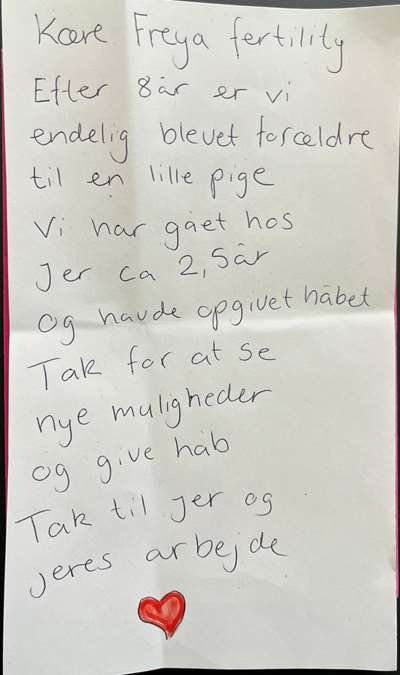 Kære Freya fertility
Efter 8år er vi
endelig blevet forældre
til en lille pige
Vi har gået hos
Jer ca 2,5år
og havde opgivet håbet
Tak for at se
nye muligheder
og give håb
Tak til jer og
jeres arbejde